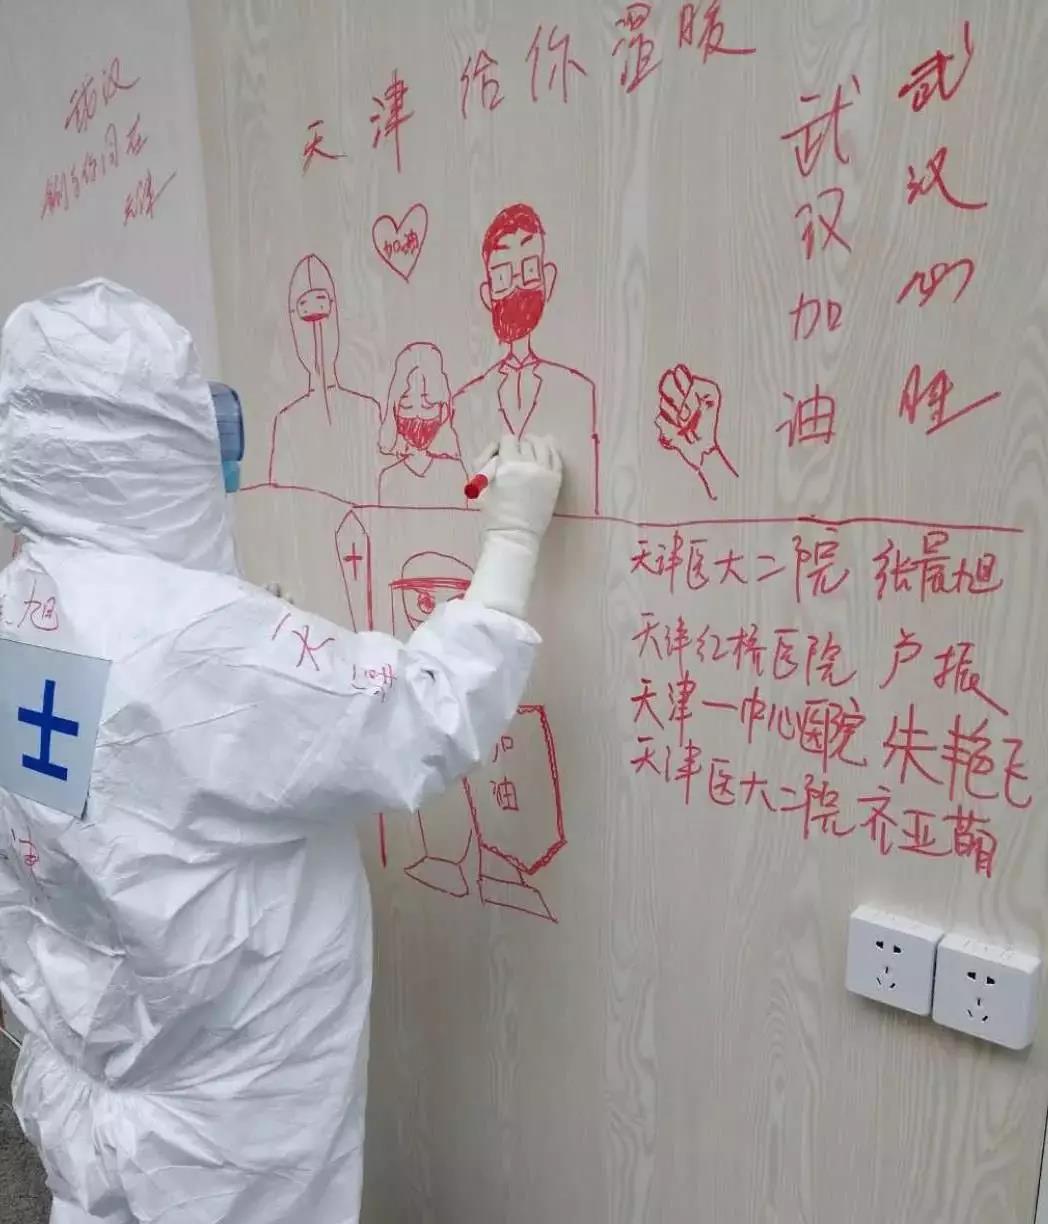 天津给你温暖
武汉
我们与你同在
天津
加油
武汉加油
武汉必胜
天津医大二院 张晨旭
天津红桥医院 卢振
天津一中心医院 朱艳飞
天津医大二院 齐亚萌
加油
旭
油